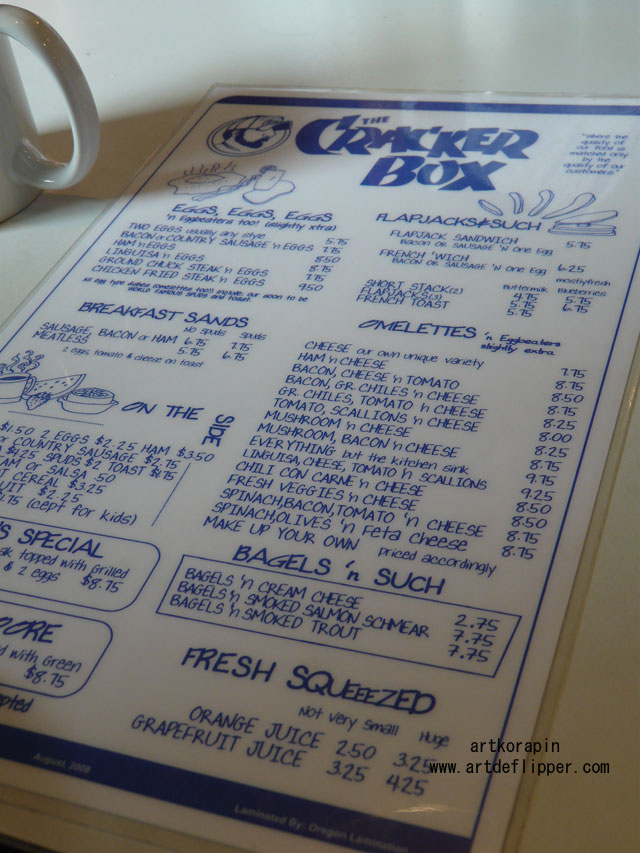 THE
CRACKER
BOX
"Where the
quality of
our food is
matched only
by the
quality of our
customers."
EGGS, EGGS, EGGS
'n Eggbeaters too! (slightly extra)
TWO EGGS usually any style 5.75
BACON or COUNTRY SAUSAGE 'n EGGS 7.75
HAM 'n EGGS 8.50
LINGUISA 'n EGGS 8.75
GROUND CHUCK STEAK 'n EGGS 7.75
CHICKEN FRIED STEAK 'n EGGS 9.50
WORLD FAMOUS SPUDS and TOAST
BREAKFAST SANDS
No Spuds Spuds
SAUSAGE, BACON or HAM 6.75 7.75
MEATLESS 5.75 6.75
2 eggs, tomato & cheese on toast
ON THE SIDE
$1.50 2 EGGS $2.25 HAM $3.50
or COUNTRY SAUSAGE $2.75
$1.25 SPUDS $2 TOAST $1.75
or SALSA .50
CEREAL $3.25
$2.25
(cept for kids)
'S SPECIAL
topped with Grilled
& 2 eggs $8.75
with Green
$8.75
FLAPJACKS & SUCH
FLAPJACK SANDWICH 5.75
BACON or SAUSAGE 'n One Egg
FRENCH 'WICH 6.25
BACON or SAUSAGE 'n One Egg
mostlyfresh
Buttermilk Blueberries
SHORT STACK(2) 4.75 5.75
FLAPJACKS(3) 5.75 6.75
FRENCH TOAST 5.75
OMELETTES 'n Eggbeaters
slightly extra
CHEESE our own unique variety 7.75
HAM 'n CHEESE 8.75
BACON, CHEESE 'n TOMATO 8.50
BACON, GR. CHILES 'n CHEESE 8.75
GR. CHILES, TOMATO 'n CHEESE 8.25
TOMATO, SCALLIONS 'n CHEESE 8.00
MUSHROOM 'n CHEESE 8.25
MUSHROOM, BACON 'n CHEESE 8.75
EVERYTHING but the kitchen sink 9.75
LINGUISA, CHEESE, TOMATO 'n SCALLIONS 9.25
CHILI CON CARNE 'n CHEESE 8.50
FRESH VEGGIES 'n CHEESE 8.50
SPINACH, BACON, TOMATO 'n CHEESE 8.75
SPINACH, OLIVES 'n Feta cheese 8.75
MAKE UP YOUR OWN priced accordingly
BAGELS 'n SUCH
BAGELS 'n CREAM CHEESE 2.75
BAGELS 'n SMOKED SALMON SCHMEAR 7.75
BAGELS 'n SMOKED TROUT 7.75
FRESH SQUEEEZED
Not Very Small Huge
ORANGE JUICE 2.50 3.25
GRAPEFRUIT JUICE 3.25 4.25
August, 2008
Laminated By: Oregon Lamination
artkorapin
www.artdeflipper.com